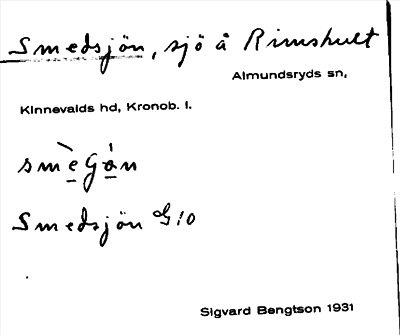 Smedsjön, sjö å Rimshult
Almundsryds sn,
Kinnevalds hd, Kronob. l.
Smedsjön G10
Sigvard Bengtson 1931